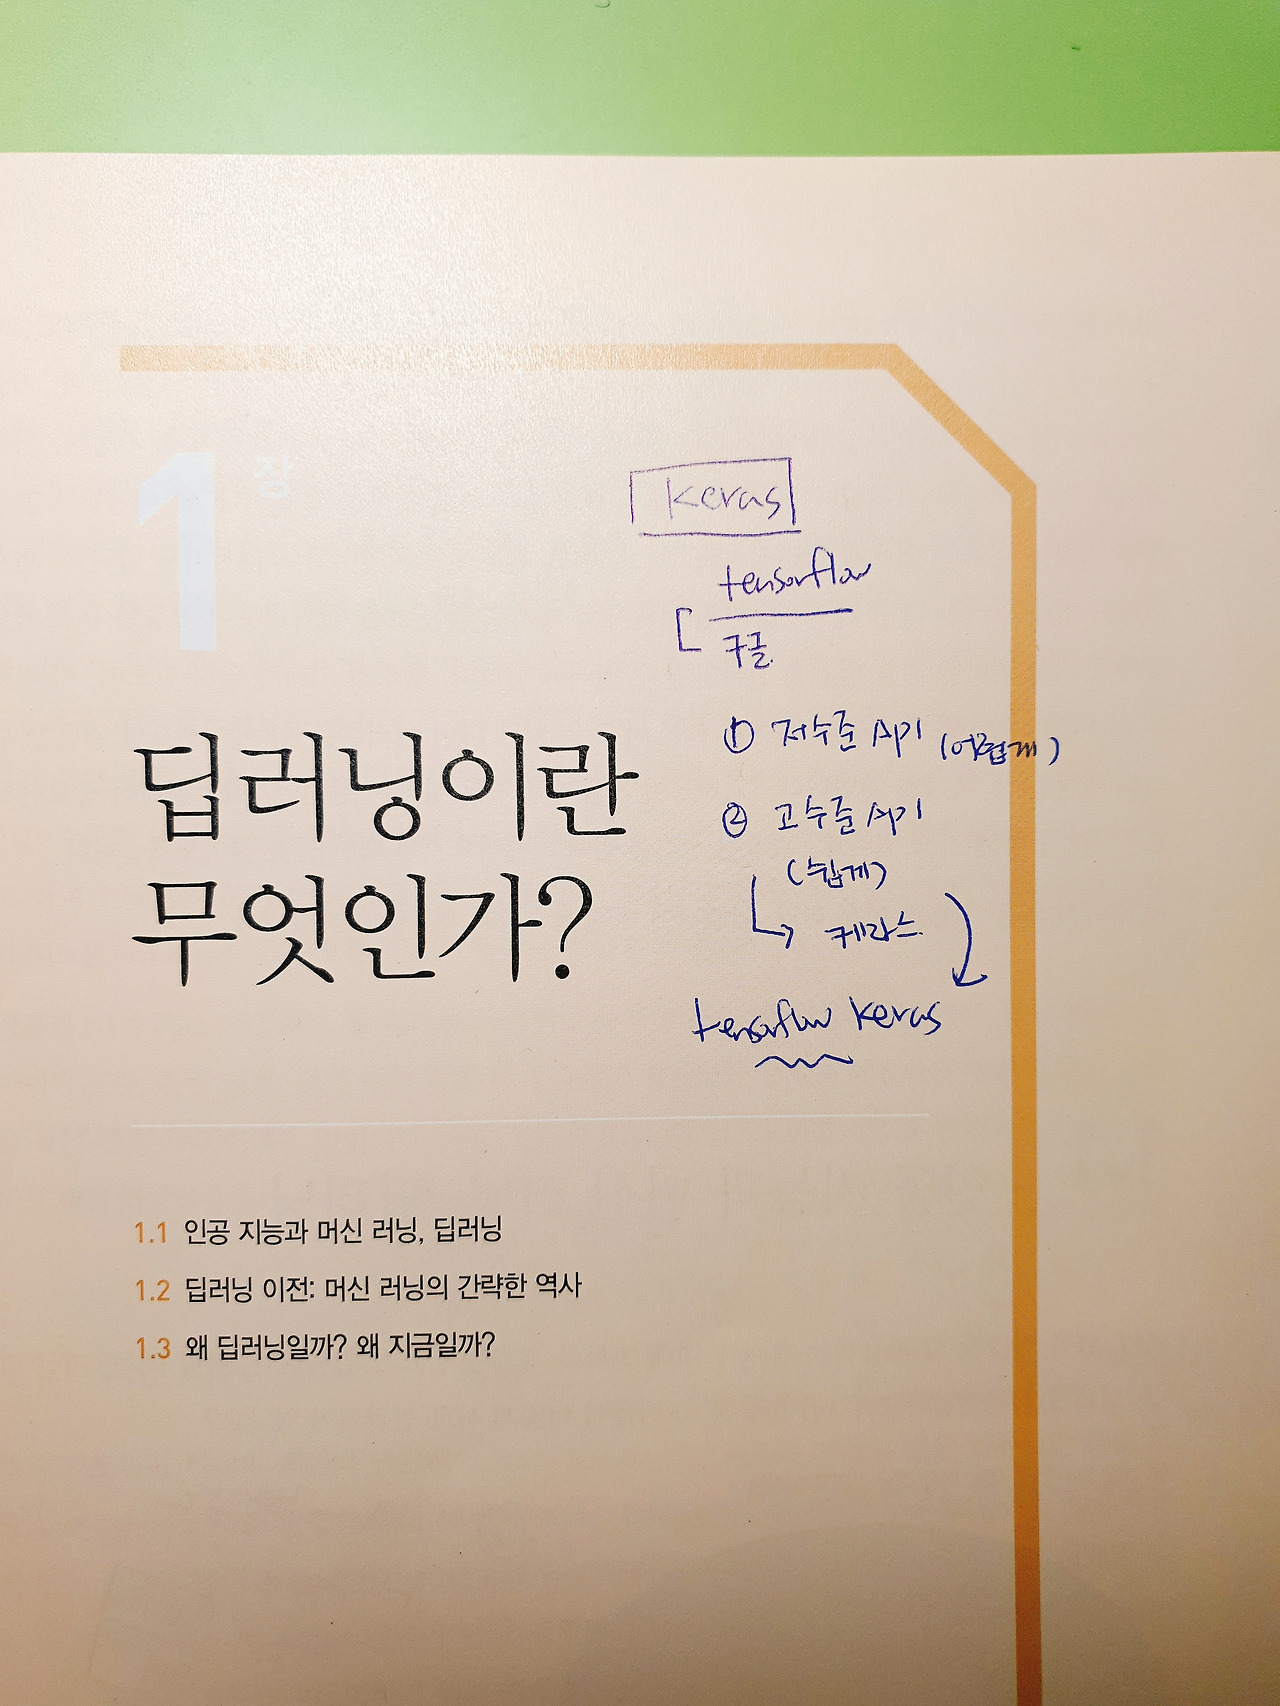 1장
keras
tensorflow
구글
① 저수준 Api (어렵게)
② 고수준 Api
(쉽게)
케라스
tensorflow keras
딥러닝이란
무엇인가?
1.1 인공 지능과 머신 러닝, 딥러닝
1.2 딥러닝 이전: 머신 러닝의 간략한 역사
1.3 왜 딥러닝일까? 왜 지금일까?